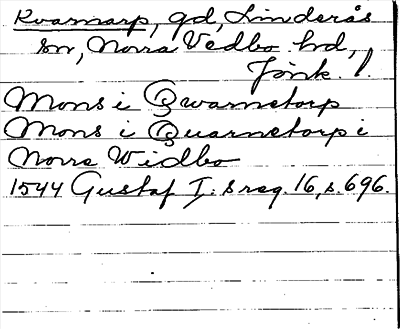 Kvarnarp, gd, Linderås
sn, Norra Vedbo hd,
Jönk. l.
Mons i Qwarnetorp
Mons i Quarnetorp i
Norre Widbo
1544 Gustaf I: s reg. 16, s. 696.